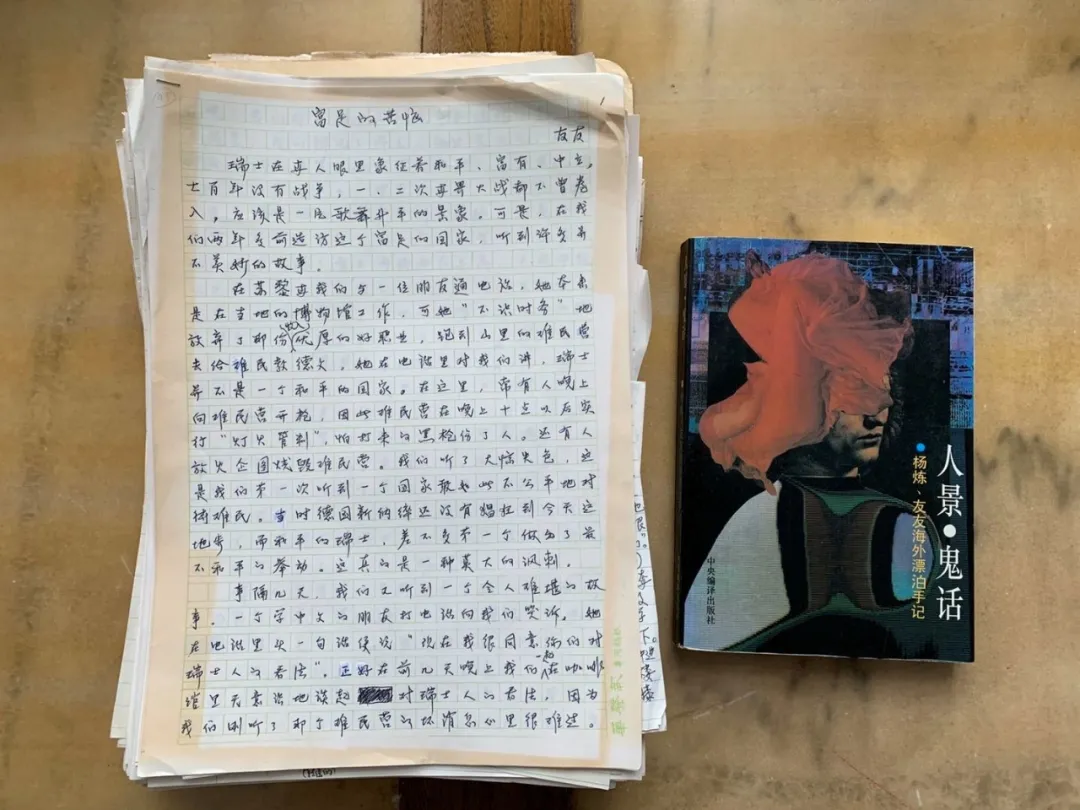 富足的苦恼
友友
瑞士在世人眼里象征着和平、富有、中立。
七百年没有战争,一、二次世界大战都不曾卷
入。应该是一片歌舞升平的景象。可是,在我
们两年多前造访这个富足的国家,听到许多并
不美妙的故事。
在苏黎世我们与一位朋友通电话,她本来
是在当地的博物馆工作,可她“不识时务”地
放弃了那份优厚的好职业,跑到山里的难民营
去给难民教德文,她在电话里对我们讲,瑞士
并不是一个和平的国家。在这里,常有人晚上
向难民营开枪,因此难民营在晚上十点以后实
行“灯火管制”,怕打来的黑枪伤了人。还有人
放火企图烧毁难民营。我们听了大惊失色,这
是我们第一次听到一个国家敢如此不公平地对
待难民。当时德国新纳粹还没有猖狂到今天这
地步,而和平的瑞士,差不多第一个做出了最
不和平的举动。这真的是一种莫大的讽刺。
事隔几天,我们又听到一个令人难堪的故
事。一个学中文的朋友打电话向我们哭诉。她
在电话里头一句话便说“现在我很同意你们对
瑞士人的看法”。正好在前几天晚上我们一起在咖啡
馆里无意识地谈起对瑞士人的看法,因为
我们刚听了那个难民营的坏消息心里很难过。
人景·鬼话
杨炼、友友海外漂泊手记
中央编译出版社